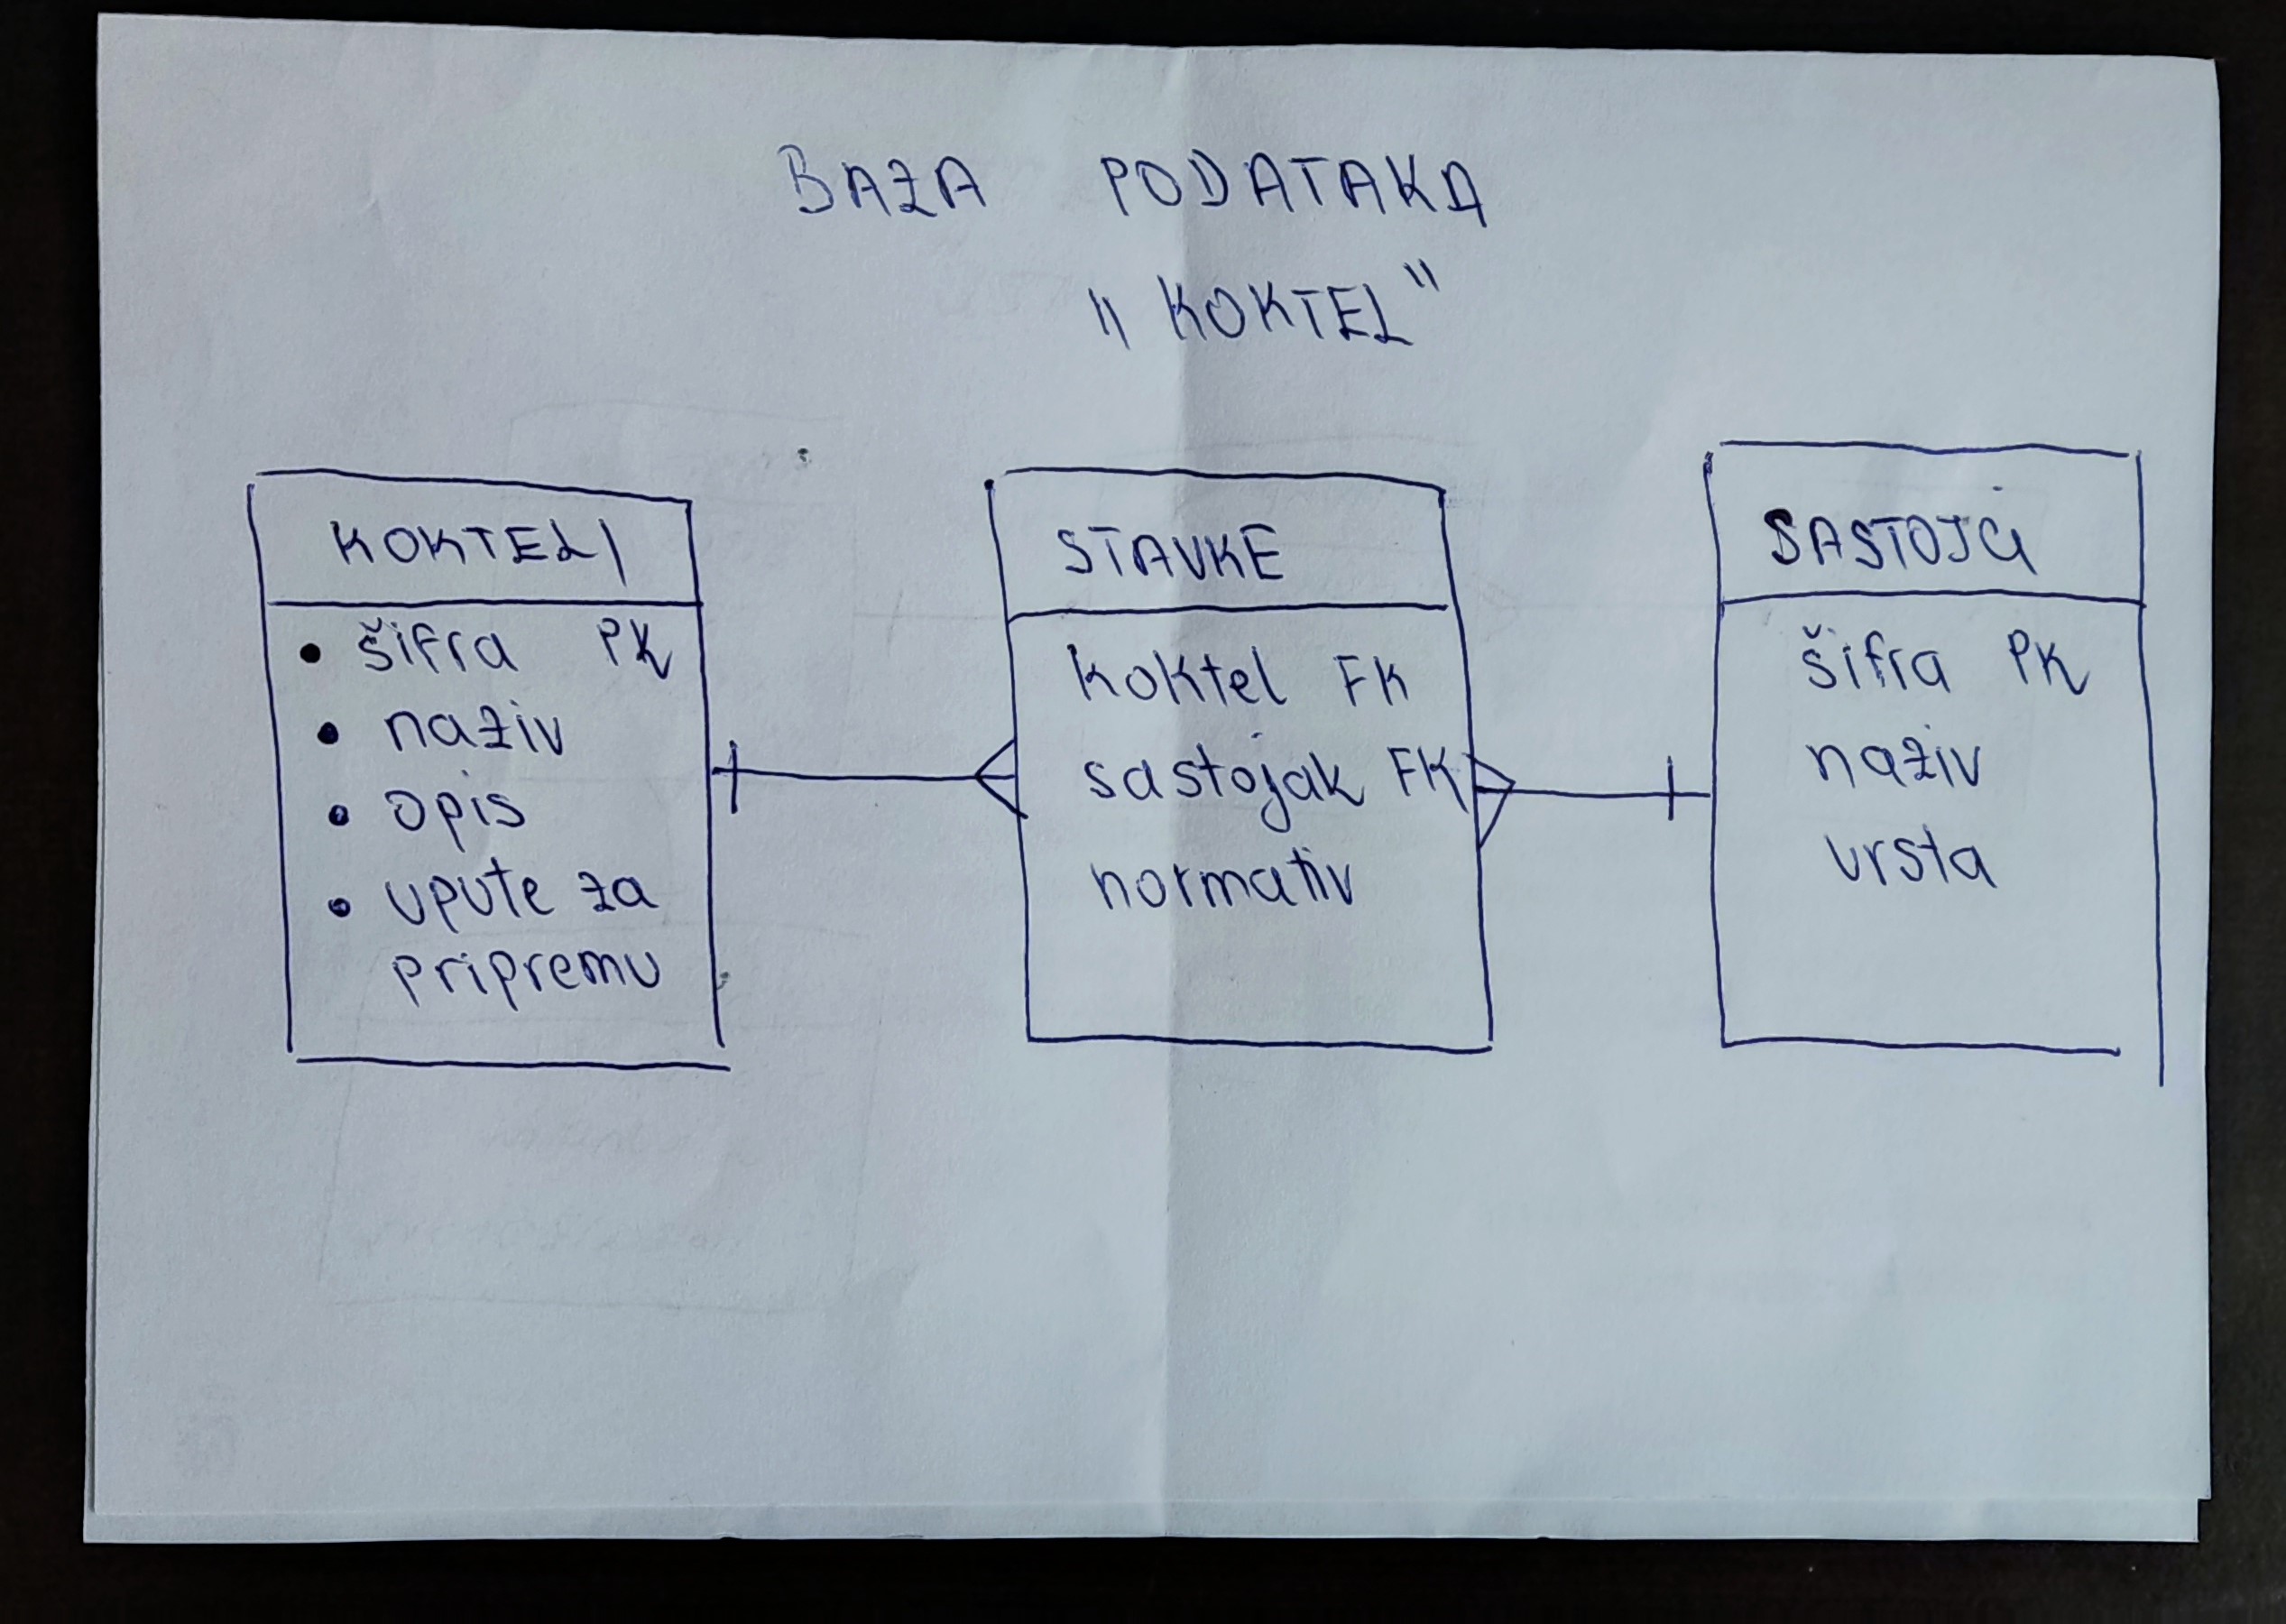 BAZA PODATAKA
„KOKTEL"
KOKTELI
• šifra PK
• naziv
• opis
• upute za
pripremu
STAVKE
koktel FK
sastojak FK
normativ
SASTOJCI
šifra PK
naziv
vrsta